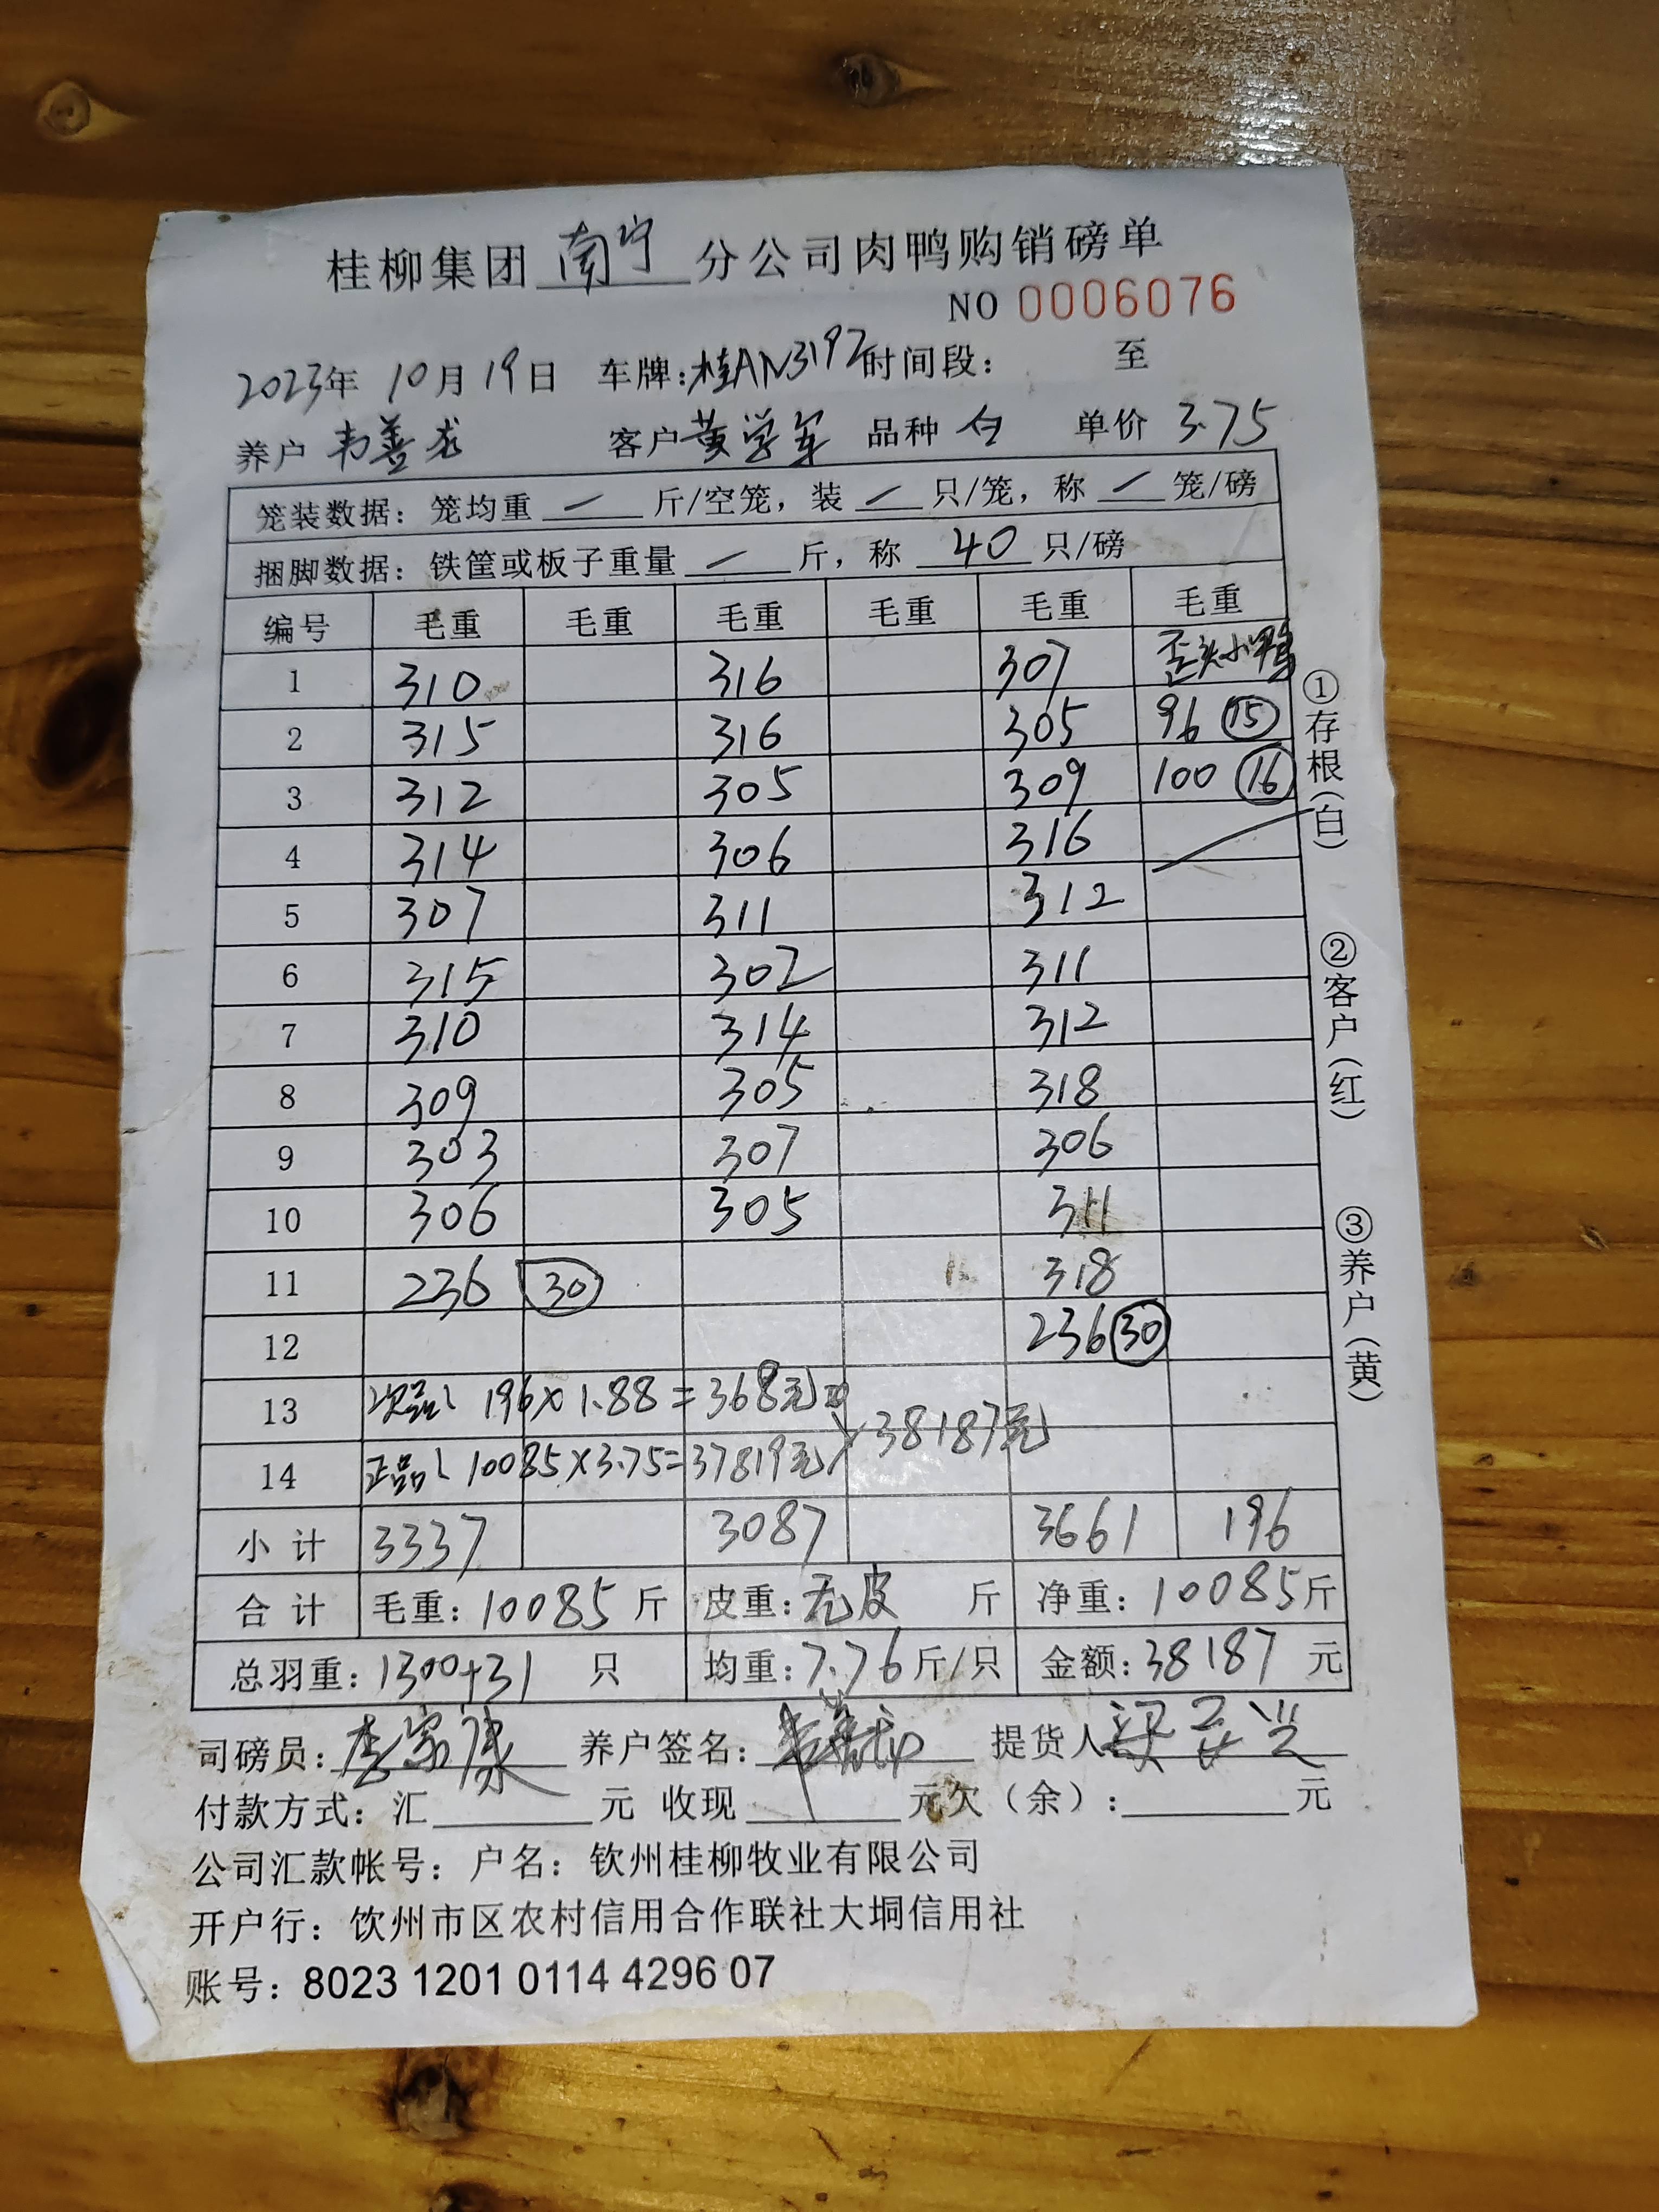 桂柳集团 南宁 分公司肉鸭购销磅单
NO 0006076
2023年 10月19日 车牌:桂AN3197 时间段: 至
养户 韦善龙 客户 黄学军 品种 白 单价 3.75
笼装数据: 笼均重 / 斤/空笼, 装 / 只/笼, 称 / 笼/磅
捆脚数据: 铁筐或板子重量 / 斤, 称 40 只/磅
编号 毛重 毛重 毛重 毛重 毛重 毛重
1 310 316 307 歪头小鸭
2 315 316 305 96 (15)
3 312 305 309 100 (16)
4 314 306 316
5 307 311 312
6 315 302 311
7 310 314 312
8 309 305 318
9 303 307 306
10 306 305 311
11 236 (30) 318
12 236 (30)
13 次品: 196×1.88=368元
38187元
14 正品: 10085×3.75=37819元
小计 3337 3087 3661 196
合计 毛重: 10085 斤 皮重: 无皮 斤 净重: 10085斤
总羽重: 1300+31 只 均重: 7.76斤/只 金额: 38187 元
司磅员: 李家康 养户签名: 提货人
付款方式: 汇 元 收现 元欠(余): 元
公司汇款帐号: 户名: 钦州桂柳牧业有限公司
开户行: 饮州市区农村信用合作联社大垌信用社
账号: 8023 1201 0114 4296 07
①存根(白)
②客户(红)
③养户(黄)